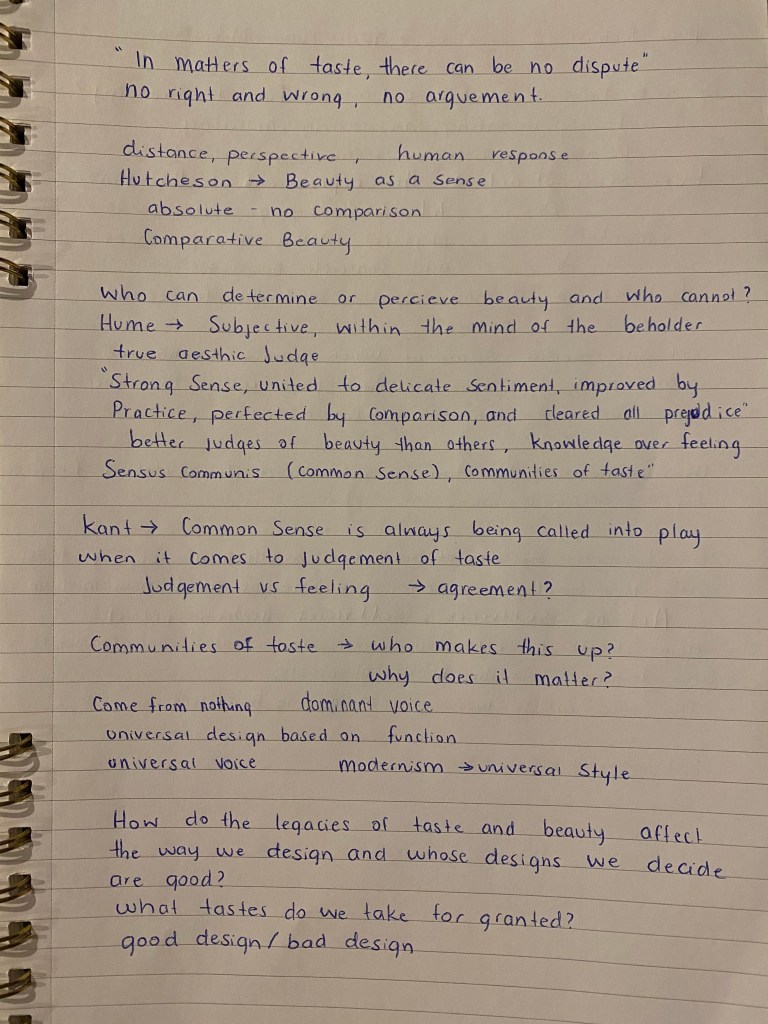 "In matters of taste, there can be no dispute"
no right and wrong, no arguement.
distance, perspective, human response
Hutcheson → Beauty as a sense
absolute - no comparison
Comparative Beauty
Who can determine or percieve beauty and who cannot?
Hume → Subjective, within the mind of the beholder
true aesthic Judge
"Strong Sense, united to delicate sentiment, improved by
Practice, perfected by comparison, and cleared all prejudice"
better judges of beauty than others, knowledge over feeling
Sensus communis (common sense), communities of taste"
Kant → Common Sense is always being called into play
when it comes to judgement of taste
Judgement vs feeling → agreement?
Communities of taste → who makes this up?
why does it matter?
Come from nothing dominant voice
universal design based on function
universal voice modernism → universal style
How do the legacies of taste and beauty affect
the way we design and whose designs we decide
are good?
what tastes do we take for granted?
good design / bad design